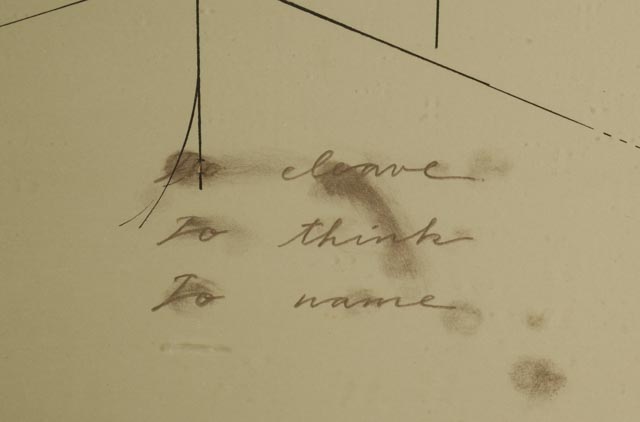 To cleave
To think
To name